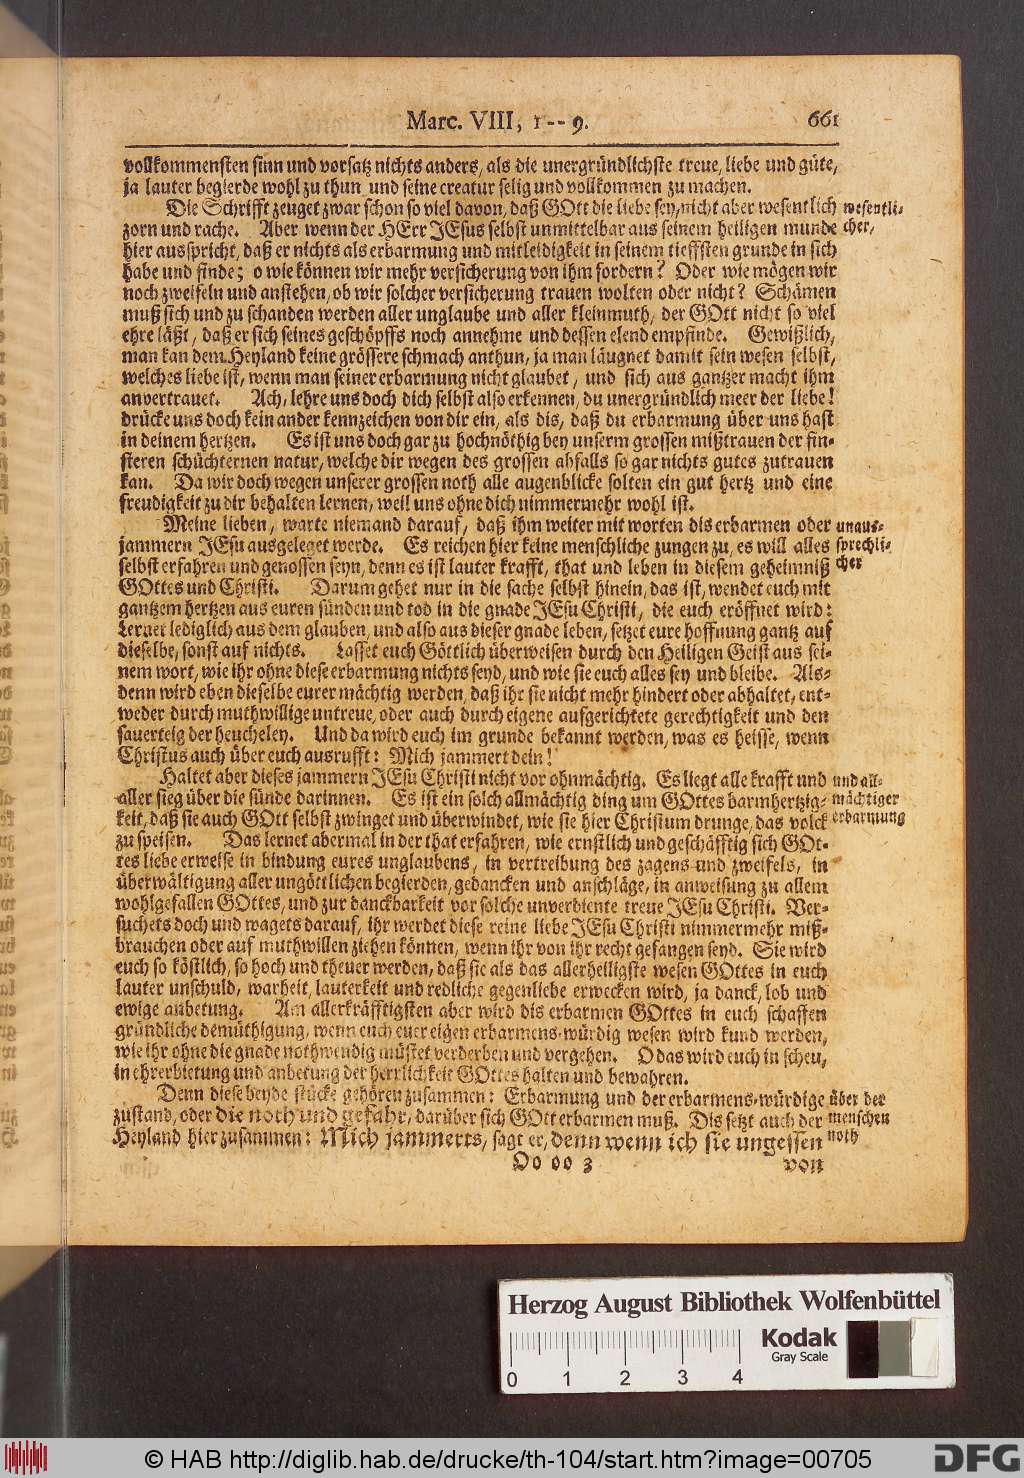 Marc. VIII, 1--9. 661
vollkommensten sinn und vorsatz nichts anders, als die unergründlichste treue, liebe und güte,
ja lauter begierde wohl zu thun und seine creatur selig und vollkommen zu machen.
Die Schrifft zeuget zwar schon so viel davon, daß GOtt die liebe sey, nicht aber wesentlich wesentli-
zorn und rache. Aber wenn der HErr JEsus selbst unmittelbar aus seinem heiligen munde cher,
hier ausspricht, daß er nichts als erbarmung und mitleidigkeit in seinem tieffsten grunde in sich
habe und finde; o wie können wir mehr versicherung von ihm fordern? Oder wie mögen wir
noch zweifeln und anstehen, ob wir solcher versicherung trauen wolten oder nicht? Schämen
muß sich und zu schanden werden aller unglaube und aller kleinmuth, der GOtt nicht so viel
ehre läßt, daß er sich seines geschöpffs noch annehme und dessen elend empfinde. Gewißlich,
man kan dem Heyland keine grössere schmach anthun, ja man läugnet damit sein wesen selbst,
welches liebe ist, wenn man seiner erbarmung nicht glaubet, und sich aus gantzer macht ihm
anvertrauet. Ach, lehre uns doch dich selbst also erkennen, du unergründlich meer der liebe!
drücke uns doch kein ander kennzeichen von dir ein, als dis, daß du erbarmung über uns hast
in deinem hertzen. Es ist uns doch gar zu hochnöthig bey unserm grossen mißtrauen der fin-
steren schüchternen natur, welche dir wegen des grossen abfalls so gar nichts gutes zutrauen
kan. Da wir doch wegen unserer grossen noth alle augenblicke solten ein gut hertz und eine
freudigkeit zu dir behalten lernen, weil uns ohne dich nimmermehr wohl ist.
Meine lieben, warte niemand darauf, daß ihm weiter mit worten dis erbarmen oder unaus-
jammern JEsu ausgeleget werde. Es reichen hier keine menschliche zungen zu, es will alles sprechli-
selbst erfahren und genossen seyn, denn es ist lauter krafft, that und leben in diesem geheimniß cher
GOttes und Christi. Darum gehet nur in die sache selbst hinein, das ist, wendet euch mit
gantzem hertzen aus euren sünden und tod in die gnade JEsu Christi, die euch eröffnet wird:
Lernet lediglich aus dem glauben, und also aus dieser gnade leben, setzet eure hoffnung gantz auf
dieselbe, sonst auf nichts. Lasset euch Göttlich überweisen durch den Heiligen Geist aus sei-
nem wort, wie ihr ohne diese erbarmung nichts seyd, und wie sie euch alles sey und bleibe. Als-
denn wird eben dieselbe eurer mächtig werden, daß ihr sie nicht mehr hindert oder abhaltet, ent-
weder durch muthwillige untreue, oder auch durch eigene aufgerichtete gerechtigkeit und den
sauerteig der heucheley. Und da wird euch im grunde bekannt werden, was es heisse, wenn
Christus auch über euch ausrufft: Mich jammert dein!
Haltet aber dieses jammern JEsu Christi nicht vor ohnmächtig. Es liegt alle krafft und und all-
aller sieg über die sünde darinnen. Es ist ein solch allmächtig ding um GOttes barmhertzig- mächtiger
keit, daß sie auch GOtt selbst zwinget und überwindet, wie sie hier Christum drunge, das volck erbarmung
zu speisen. Das lernet abermal in der that erfahren, wie ernstlich und geschäfftig sich GOt-
tes liebe erweise in bindung eures unglaubens, in vertreibung des zagens und zweifels, in
überwältigung aller ungöttlichen begierden, gedancken und anschläge, in anweisung zu allem
wohlgefallen GOttes, und zur danckbarkeit vor solche unverdiente treue JEsu Christi. Ver-
suchets doch und wagets darauf, ihr werdet diese reine liebe JEsu Christi nimmermehr miß-
brauchen oder auf muthwillen ziehen können, wenn ihr von ihr recht gefangen seyd. Sie wird
euch so köstlich, so hoch und theuer werden, daß sie als das allerheiligste wesen GOttes in euch
lauter unschuld, warheit, lauterkeit und redliche gegenliebe erwecken wird, ja danck, lob und
ewige anbetung. Am allerkräfftigsten aber wird dis erbarmen GOttes in euch schaffen
gründliche demüthigung, wenn euch euer eigen erbarmens-würdig wesen wird kund werden,
wie ihr ohne die gnade nothwendig müstet verderben und vergehen. O das wird euch in scheu,
in ehrerbietung und anbetung der herrlichkeit GOttes halten und bewahren.
Denn diese beyde stücke gehören zusammen: Erbarmung und der erbarmens-würdige über der
zustand, oder die noth und gefahr, darüber sich GOtt erbarmen muß. Dis setzt auch der menschen
Heyland hier zusammen: Mich jammerts, sagt er, denn wenn ich sie ungessen noth
Oo oo 3 von
Herzog August Bibliothek Wolfenbüttel
Kodak
Gray Scale
0 1 2 3 4
© HAB http://diglib.hab.de/drucke/th-104/start.htm?image=00705
DFG